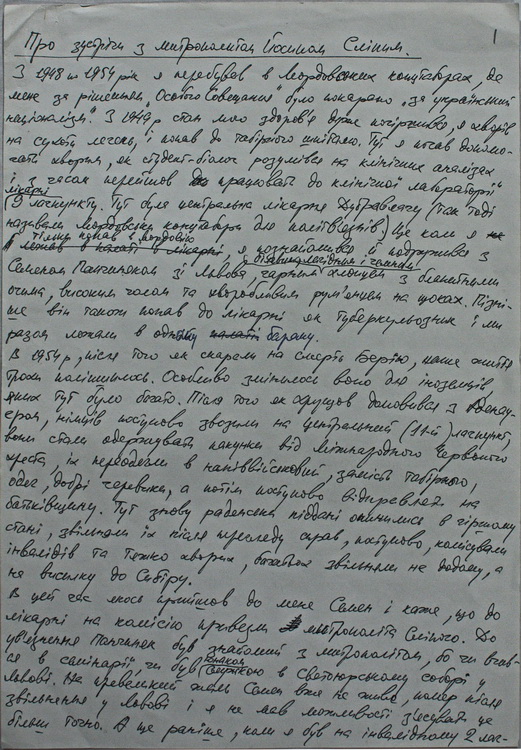 1
Про зустрічі з митрополитом Йосипом Сліпим.
З 1948 по 1954 рік я перебував в Мордовських концтаборах, де
мене за рішенням „Особого Совещания" було покарано „за український
націоналізм". З 1949 р стан мого здоров'я дуже погіршився, я хворів
на сухоти легень, і попав до табірного шпіталю. Тут я почав допомо-
гати хворим, як студент-біолог розумівся на клінічних аналізах
і з часом перейшов до працювать до клінічної лабораторії
лікарні
(9 лагпункту. Тут була центральна лікарня Дубравлагу (так тоді
називали Мордовські концтабори для політв'язнів) Ще коли я не
тільки попав в Мордовію
я лежав в палаті в лікарні, я познайомився й подружився з
з двадцятилітнім і гарним
Семеном Паньчиником з Львова, гарним хлопцем з блакитними
очима, високим чолом та хворобливим рум'янцем на щоках. Пізні-
ше він також попав до лікарні як туберкульозник і ми
разом лежали в одному палаті бараку.
В 1954 р, після того як скарали на смерть Берію, наше життя
трохи поліпшилось. Особливо змінилось воно для іноземців
яких тут було багато. Після того як Хрущов домовився з Аденау-
ером, німців поступово звозили на центральний (11-й) лагпункт,
вони стали одержувать пакунки від Міжнародного Червоного
Хреста, їх переодягли в напіввійськовий, замість табірного,
одяг, добрі черевики, а потім поступово відправляли на
батьківщину. Тут знову радянські піддані опинились в гіршому
стані, звільняли їх після перегляду справ, поступово, комісували
інвалідів та тяжко хворих, багатьох звільняли не додому, а
на висилку до Сибіру.
В цей час якось прийшов до мене Семен і каже, що до
лікарні на комісію привезли митрополита Сліпого. До
ув'язнення Паньчиник був знайомий з митрополитом, бо чи вчив-
ся в семінарії, чи був в Святоюрському соборі у
Львові. На превеликий жаль Семен вже не живе, помер після
звільнення у Львові і я не мав можливості з'ясувать це
більш точно. А ще раніше, коли я був на інвалідному 2 лаг-